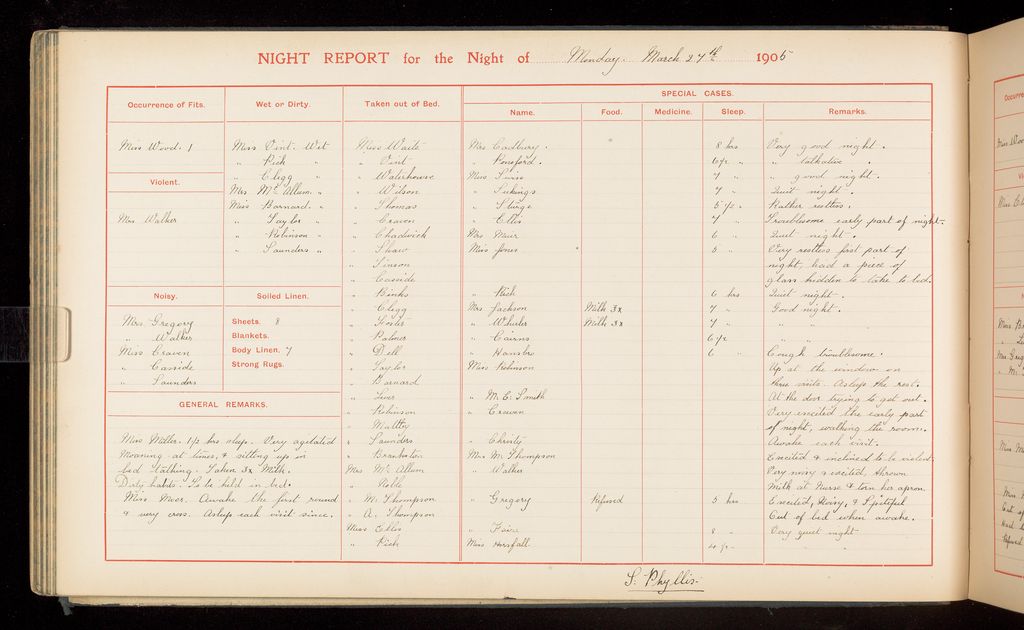 NIGHT REPORT for the Night of Monday. March 27th 1905
Occurrence of Fits.
Miss Wood. 1
Violent.
Mrs Walker
Noisy.
Mrs Gregory
" Walker
Miss Craven
" Casside
" Saunders
Wet or Dirty.
Miss Vint. Wet
" Rich "
" Clegg "
Mrs Mc Allum. "
Miss Barnard. "
" Taylor "
" Robinson "
" Saunders "
Soiled Linen.
Sheets. 8
Blankets.
Body Linen. 7
Strong Rugs.
GENERAL REMARKS.
Miss Miller. 1½ hrs sleep. Very agitated
Moaning at times, & sitting up in
bed talking. Taken 3x Milk.
Dirty habits. To be held in bed.
Miss Moor. Awake the first round
& very cross. Asleep each visit since.
Taken out of Bed.
Miss Waite
" Vint
" Waterhouse
" Wilson
" Thomas
" Craven
" Chadwick
" Shaw
" Simson
" Casside
" Binks
" Clegg
" Foster
" Palmer
" Dell
" Taylor
" Barnard
" Robinson
" Saunders
Mrs Mc Allum
" Noble
" M. Thompson
" A. Thompson
Miss Ellis
" Rich
SPECIAL CASES.
Name. Food. Medicine. Sleep. Remarks.
Mrs Cadbury. 8 hrs Very good night.
" Ponsford. 6½ " " talkative.
Miss Swiss 7 " " good night.
" Sekings 7 " Quiet night.
" Sturge 5½ " Rather restless.
" Ellis 7 " Troublesome early part of night.
Mrs Muir 6 " Quiet night.
Miss Jones 5 " Very restless first part of
night, had a piece of
glass hidden to take to bed.
" Rich 6 hrs Quiet night.
Mrs Jackson Milk 3x 7 " Good night.
" Wheeler Milk 3x 7 " " "
" Cairns 6½ " "
" Hansbro 6 " Cough troublesome.
Miss Robinson Up at the window on
three visits. Asleep the rest.
" M. E. Smith At the door trying to get out.
" Craven Very excited the early part
of night, walking the room.
" Christy Awake each visit.
Mrs M. Thompson Excited & inclined to be violent.
" Walker Very noisy & excited, thrown
Milk at Nurse & torn her apron.
" Gregory Refused 5 hrs Excited, Noisy, & Spiteful
Out of bed when awake.
" Fair 8 " Very quiet night
Miss Horsfall 4½ "
S. Phyllis.